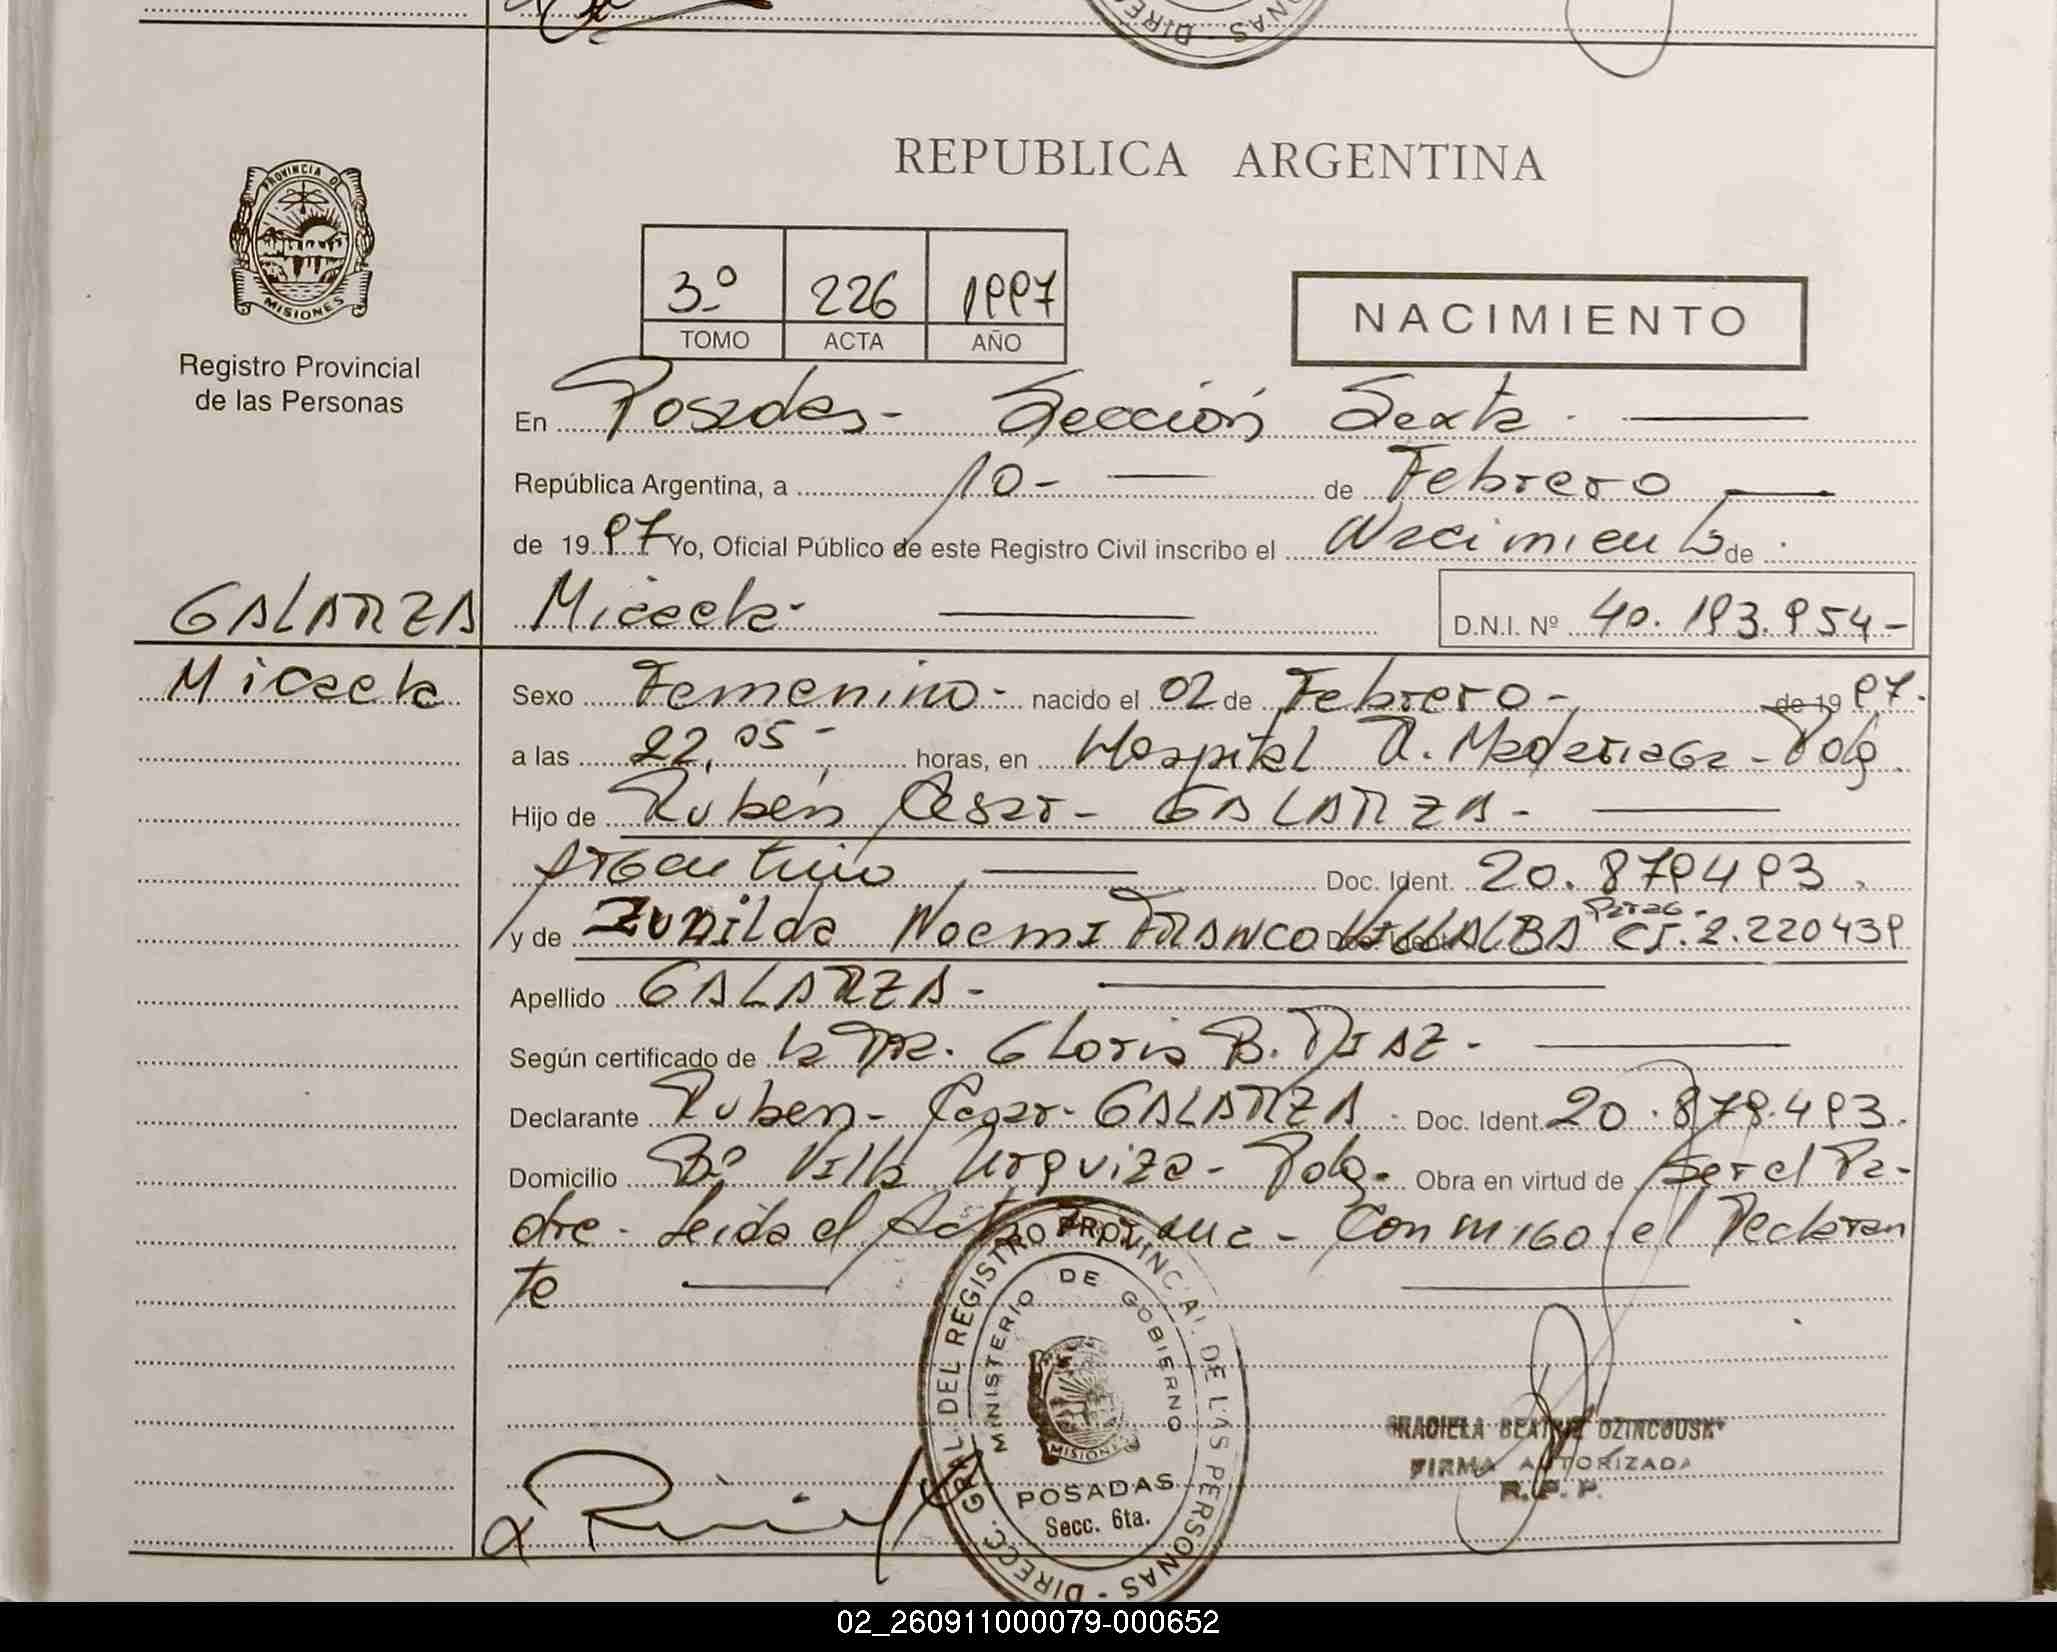 DIRE NAS
PROVINCIA DE
MISIONES
Registro Provincial
de las Personas
REPUBLICA ARGENTINA
3º 226 1997
TOMO ACTA AÑO
NACIMIENTO
En Posadas - Sección Sexta. —
República Argentina, a 10 - — de Febrero —
de 19 97 Yo, Oficial Público de este Registro Civil inscribo el Nacimiento de
GALARZA
Micaela - — D.N.I. Nº 40.193.954 -
Micaela
Sexo Femenino - nacido el 02 de Febrero - de 19 97.
a las 22,05 - horas, en Hospital R. Madariaga - Pdas
Hijo de Rubén Cesar - GALARZA - —
Argentino — Doc. Ident. 20.879493.
y de Zunilda Noemi FRANCO VILLALBA Parag - CI. 2.220439
Apellido GALARZA - —
Según certificado de la Dra. Gloria B. DIAZ - —
Declarante Ruben - Cesar - GALARZA - Doc. Ident. 20.879.493.
Domicilio Bº Villa Urquiza - Pdas. Obra en virtud de ser el Pa-
dre - Leida el Acta - Conmigo el Declaran
te —
DIRECC. GRAL. DEL REGISTRO PROVINCIAL DE LAS PERSONAS -
MINISTERIO DE GOBIERNO
MISIONES
POSADAS
Secc. 6ta.
GRACIELA BEATRIZ DZINCOUSKY
FIRMA AUTORIZADA
R. P. P.
02_260911000079-000652